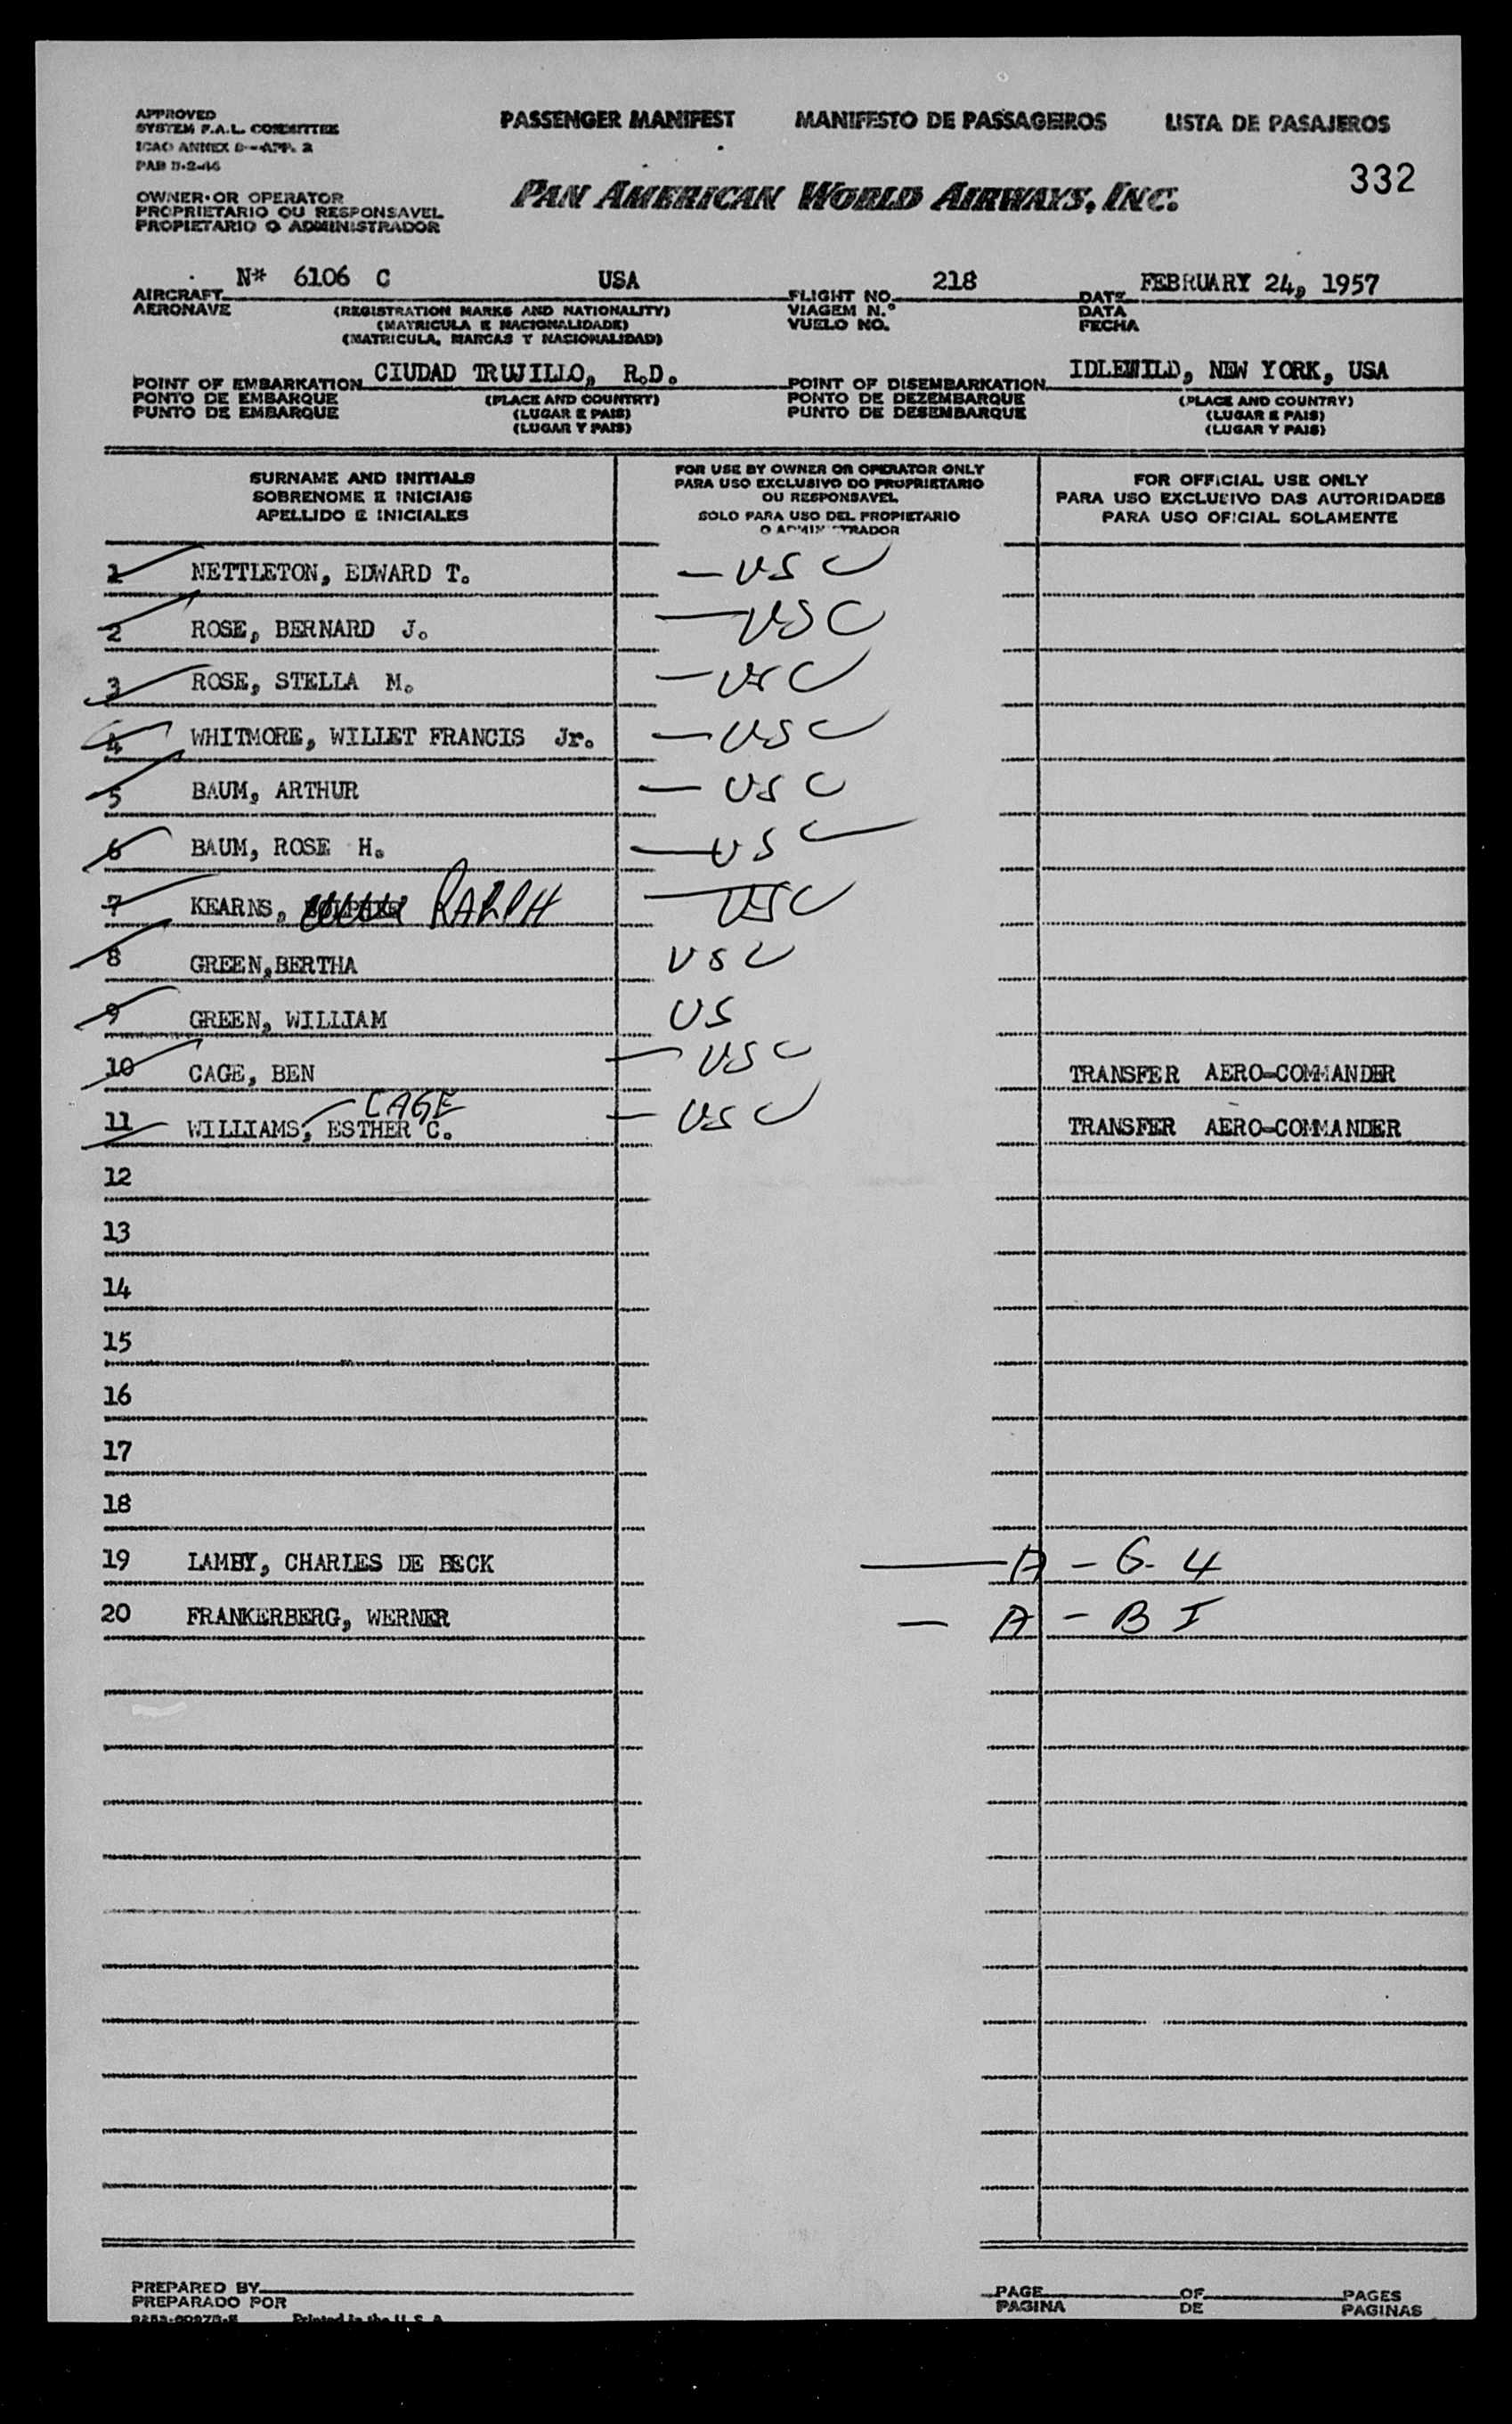 APPROVED
SYSTEM F.A.L. COMMITTEE
ICAO ANNEX 9-APP. 2
PASSENGER MANIFEST MANIFESTO DE PASSAGEIROS LISTA DE PASAJEROS
332
OWNER OR OPERATOR
PROPRIETARIO OU RESPONSAVEL
PROPIETARIO O ADMINISTRADOR
PAN AMERICAN WORLD AIRWAYS, INC.
AIRCRAFT N* 6106 C USA FLIGHT NO. 218 DATE FEBRUARY 24, 1957
AERONAVE (REGISTRATION MARKS AND NATIONALITY) VIAGEM N.º DATA
(MATRICULA E NACIONALIDADE) VUELO NO. FECHA
(MATRICULA, MARCAS Y NACIONALIDAD)
POINT OF EMBARKATION CIUDAD TRUJILLO, R.D. POINT OF DISEMBARKATION IDLEWILD, NEW YORK, USA
PONTO DE EMBARQUE (PLACE AND COUNTRY) PONTO DE DEZEMBARQUE (PLACE AND COUNTRY)
PUNTO DE EMBARQUE (LUGAR E PAIS) PUNTO DE DESEMBARQUE (LUGAR E PAIS)
(LUGAR Y PAIS) (LUGAR Y PAIS)
SURNAME AND INITIALS
SOBRENOME E INICIAIS
APELLIDO E INICIALES
FOR USE BY OWNER OR OPERATOR ONLY
PARA USO EXCLUSIVO DO PROPRIETARIO
OU RESPONSAVEL
SOLO PARA USO DEL PROPIETARIO
O ADMINISTRADOR
FOR OFFICIAL USE ONLY
PARA USO EXCLUSIVO DAS AUTORIDADES
PARA USO OFICIAL SOLAMENTE
1 NETTLETON, EDWARD T. — USC
2 ROSE, BERNARD J. — USC
3 ROSE, STELLA M. — USC
4 WHITMORE, WILLET FRANCIS Jr. — USC
5 BAUM, ARTHUR — USC
6 BAUM, ROSE H. — USC
7 KEARNS, RALPH — USC
8 GREEN,BERTHA USC
9 GREEN, WILLIAM US
10 CAGE, BEN — USC TRANSFER AERO-COMMANDER
CAGE
11 WILLIAMS, ESTHER C. — USC TRANSFER AERO-COMMANDER
12
13
14
15
16
17
18
19 LAMBY, CHARLES DE BECK — A - G-4
20 FRANKERBERG, WERNER — A - B I
PREPARED BY PAGE OF PAGES
PREPARADO POR PAGINA DE PAGINAS
Printed in the U. S. A.